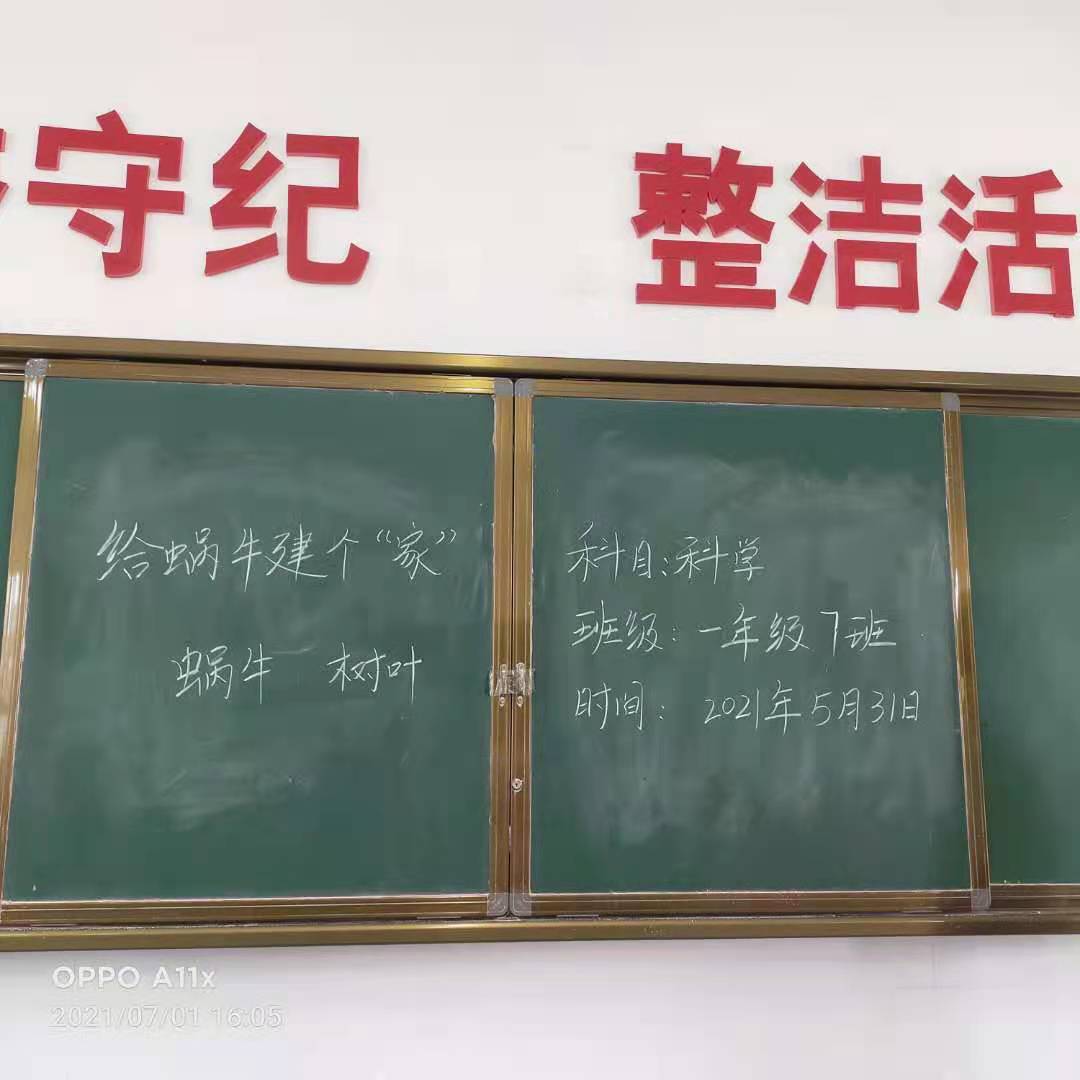 守纪 整洁活
给蜗牛建个“家”
蜗牛 树叶
科目:科学
班级:一年级7班
时间: 2021年5月31日
OPPO A11x
2021/07/01 16:05